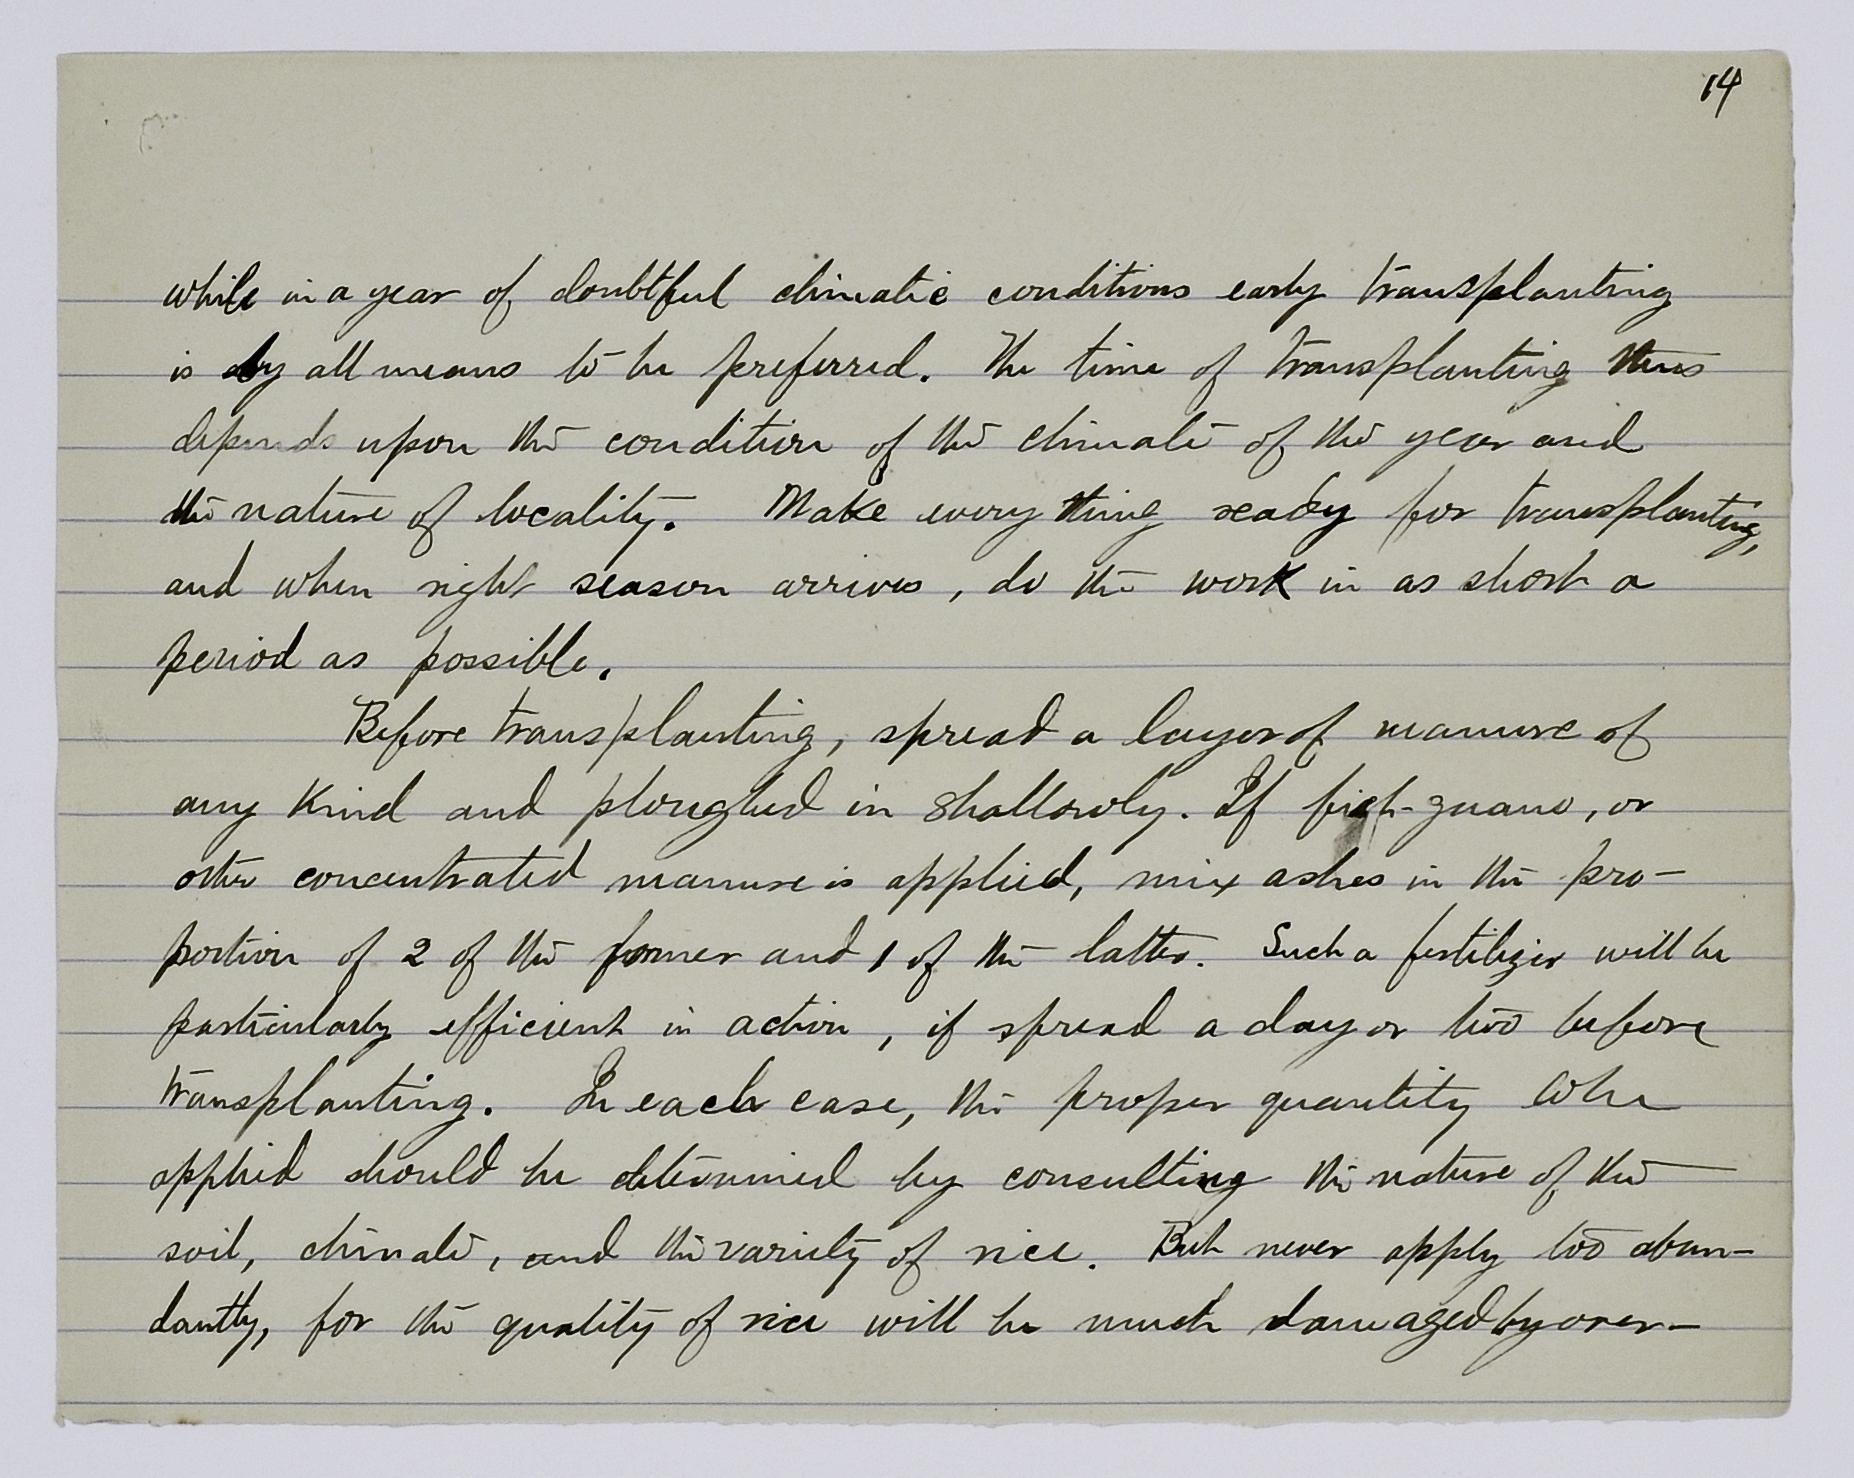 14
while in a year of doubtful climatic conditions early transplanting
is by all means to be preferred. The time of transplanting thus
depends upon the condition of the climate of the year and
the nature of locality. Make every thing ready for transplanting,
and when right season arrives, do the work in as short a
period as possible.
Before transplanting, spread a layer of manure of
any kind and ploughed in shallowly. If fish-guano, or
other concentrated manure is applied, mix ashes in the pro-
portion of 2 of the former and 1 of the latter. Such a fertilizer will be
particularly efficient in action, if spread a day or two before
transplanting. In each case, the proper quantity to be
applied should be determined by consulting the nature of the
soil, climate, and the variety of rice. But never apply too abun-
dantly, for the quality of rice will be much damaged by over-